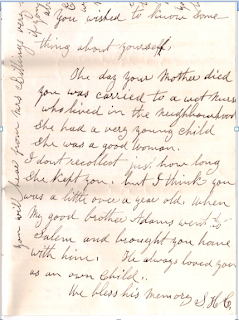 you wished to know some
thing about yourself.
The day your Mother died
you was carried to a wet Nurse
who lived in the neighbourhood
She had a very young child
She was a good woman.
I dont recollect just how long
She kept you. but I think you
was a little over a year old. when
My good brother Adams went to
Salem and brought you home
with him. He always loved you
as an own Child.
We bless his memory S H C
you will hear from mrs